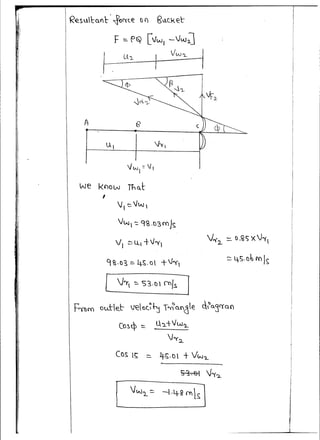 Resultant force on Bucket
F = ρQ [Vw₁ - Vw₂]
u₂ Vw₂
ϕ β V₂
Vr₂ Vf₂
A B C ϕ
u₁ Vr₁
Vw₁ = V₁
We know That
V₁ = Vw₁
Vw₁ = 98.03 m/s
V₁ = u₁ + Vr₁ Vr₂ = 0.85 x Vr₁
98.03 = 45.01 + Vr₁ = 45.06 m/s
Vr₁ = 53.01 m/s
From outlet velocity Triangle diagram
Cosϕ = u₂+Vw₂
Vr₂
Cos 15 = 45.01 + Vw₂
53.01 Vr₂
Vw₂ = -1.48 m/s